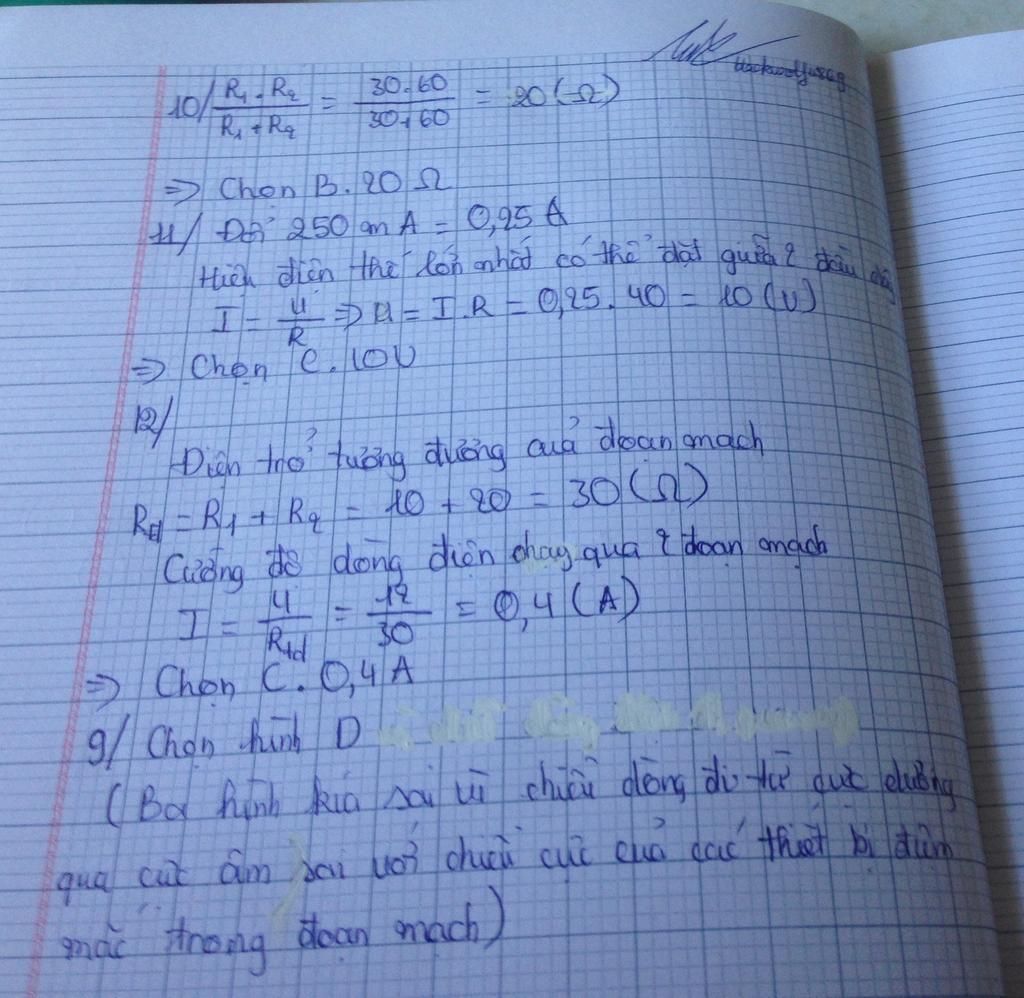 10/ R₁ . R₂ / R₁ + R₂ = 30.60 / 30+60 = 20 (Ω)
⇒ Chọn B. 20 Ω
11/ Đổi 250 mA = 0,25 A
Hiệu điện thế lớn nhất có thể đặt giữa 2 đầu dây
I = U / R ⇒ U = I.R = 0,25. 40 = 10 (V)
⇒ Chọn C. 10V
12/
Điện trở tương đương của đoạn mạch
Rtđ = R₁ + R₂ = 10 + 20 = 30 (Ω)
Cường độ dòng điện chạy qua 2 đoạn mạch
I = U / Rtđ = 12 / 30 = 0,4 (A)
⇒ Chọn C. 0,4 A
9/ Chọn hình D
(Ba hình kia sai vì chiều dòng đi từ cực dương
qua cực âm sai với chiều cực của các thiết bị điện
mắc trong đoạn mạch)